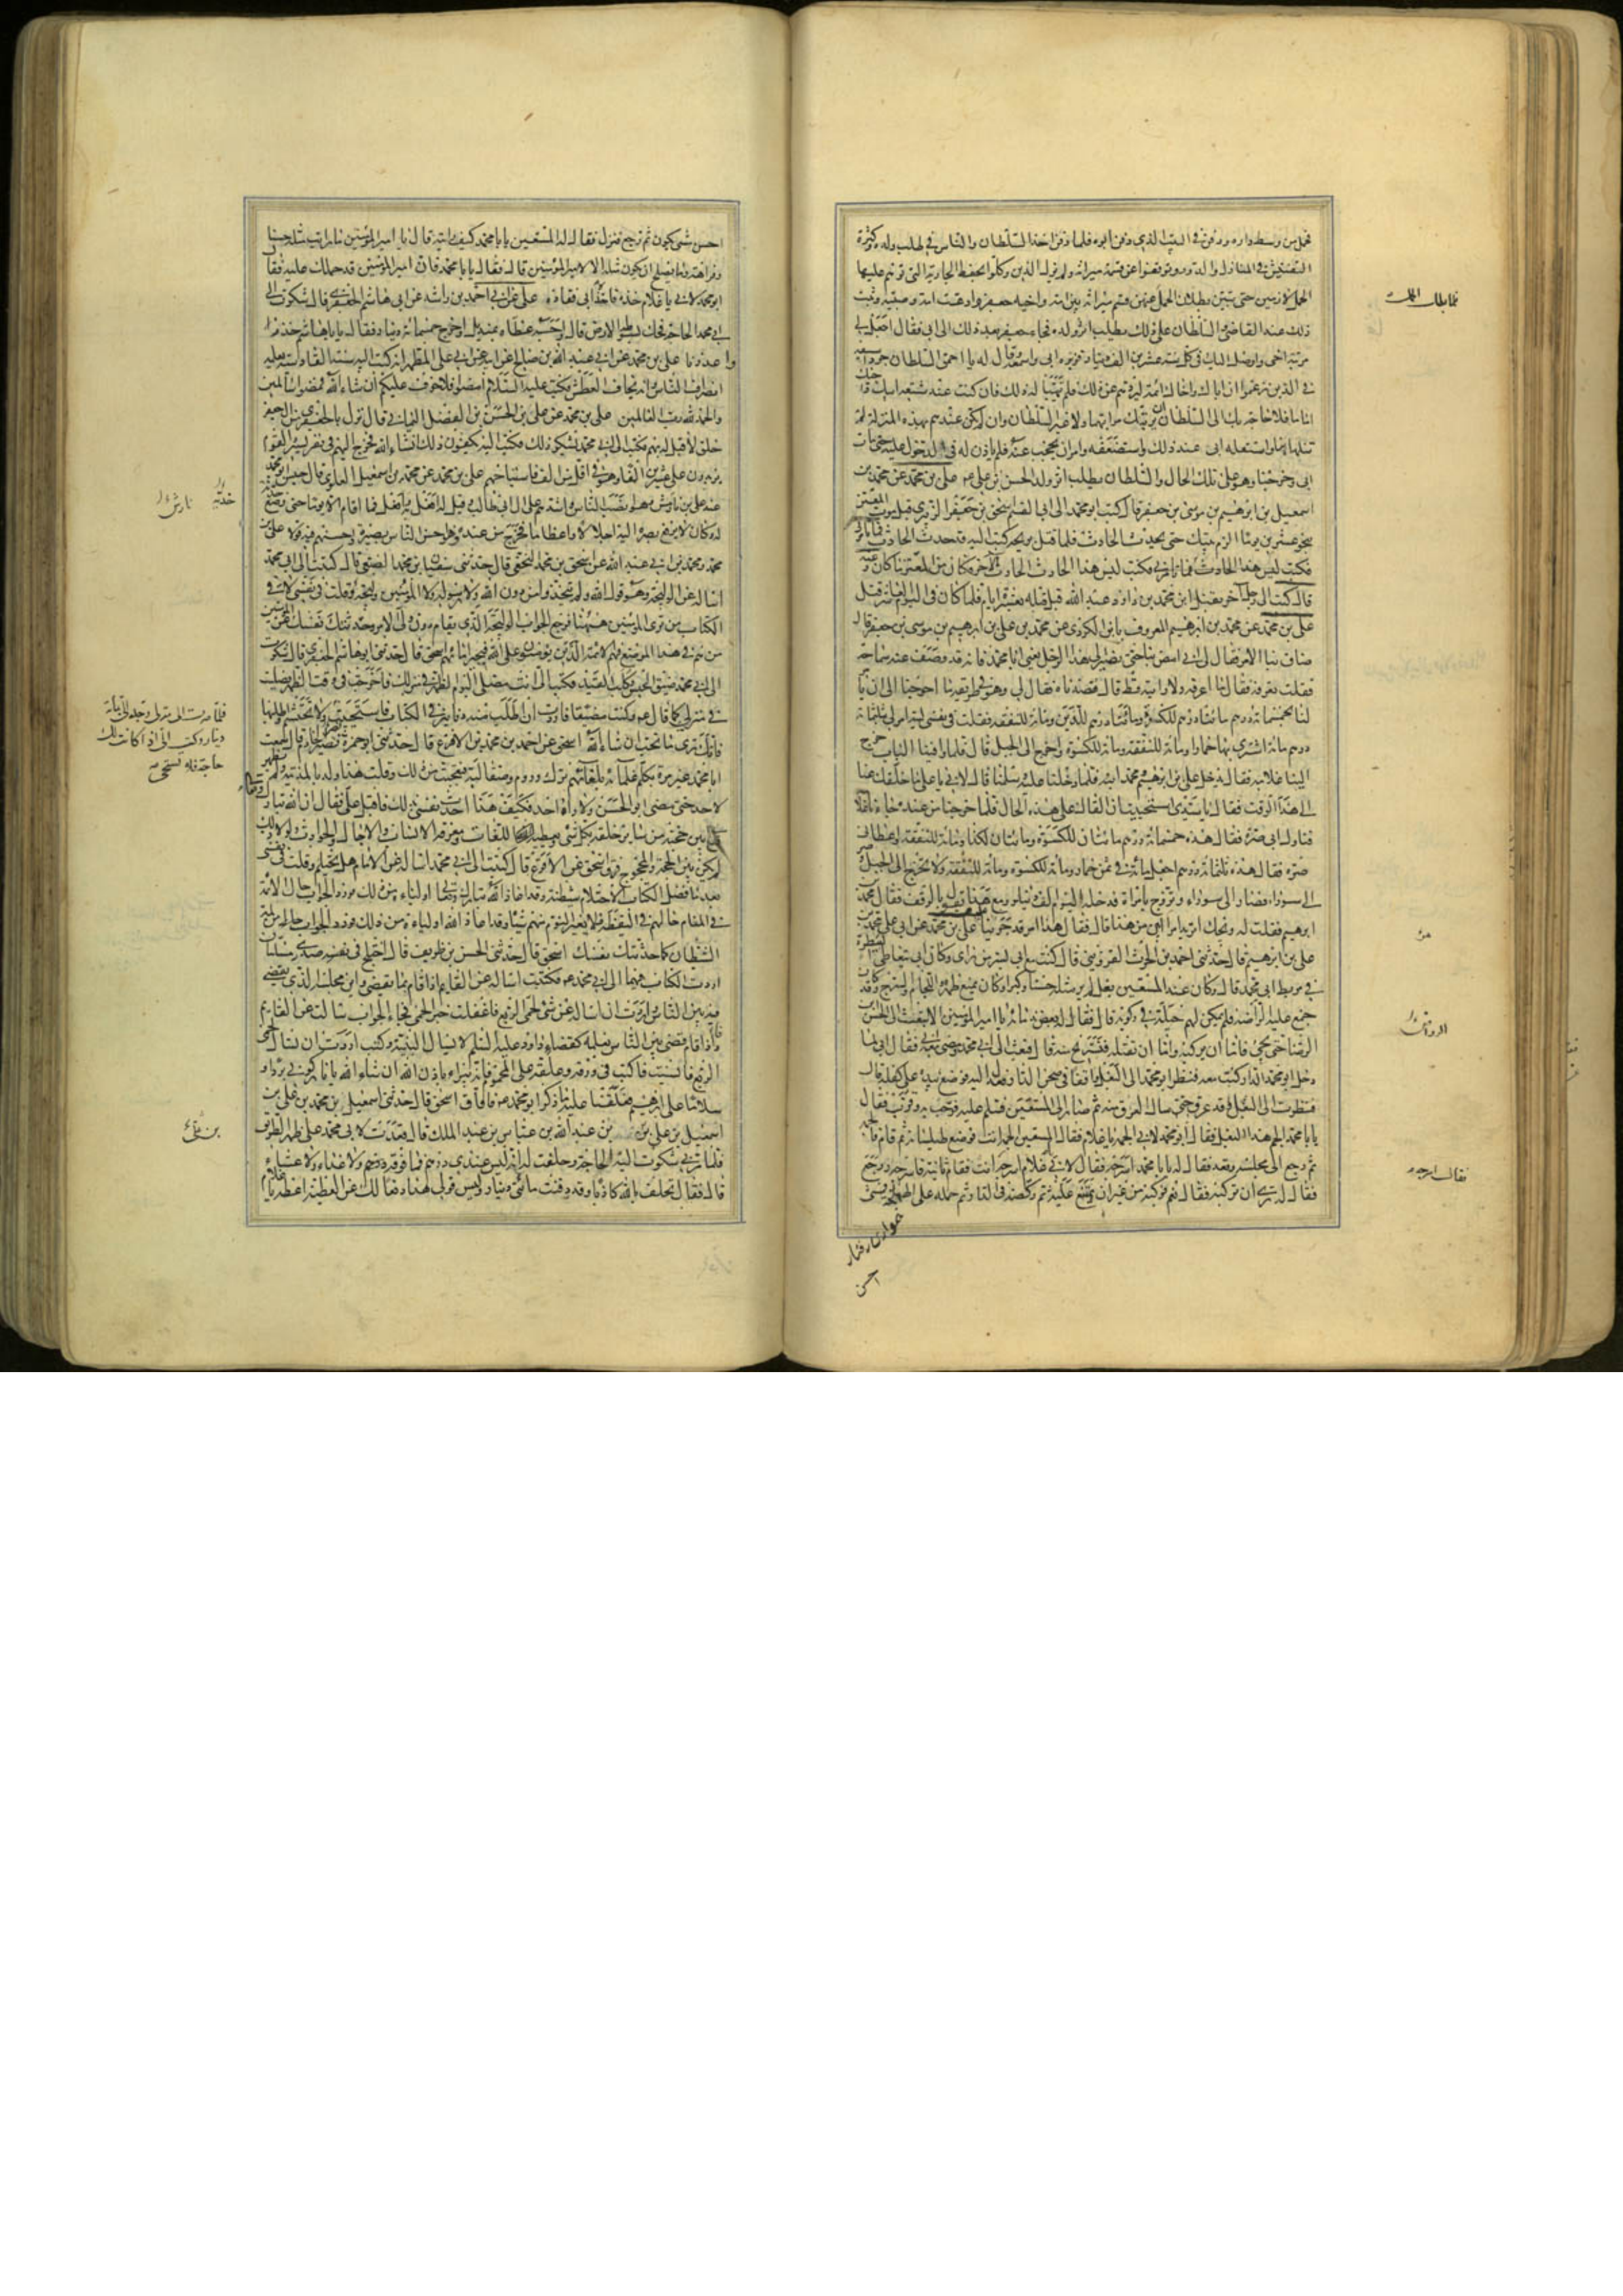 فحمل من وسط داره ودفن في البيت الذي دفن ابوه فلما دفن اخذ السلطان والناس في طلب ولده وكثرة
التفتيش في المنازل والدور وتوقفوا عن قسمة ميراثه ولم يزل الذين وكلوا بحفظ الجارية التي توهم عليها
الحمل لازمين حتى تبين بطلان الحمل عنهن قسم ميراثه بين امه واخيه جعفر وادعت امه وصيته وثبت
ذلك عند القاضي والسلطان على ذلك يطلب اثر ولده فجاء جعفر بعد ذلك الى ابي فقال اجعل لي
مرتبة اخي واوصل اليك في كل سنة عشرين الف دينار فزبره ابي واسمعه وقال له يا احمق السلطان جرد سيفه
في الذين زعموا ان اباك واخاك ائمة ليردهم عن ذلك فلم يتهيأ له ذلك فان كنت عند شيعة ابيك واخيك
اماما فلا حاجة بك الى السلطان ان يرتبك مراتبهما ولا غير السلطان وان لم تكن عندهم بهذه المنزلة لم
تنلها بنا واستقله ابي عند ذلك واستضعفه وامر ان يحجب عنه فلم ياذن له في الدخول عليه حتى مات
ابي وخرجنا وهو على تلك الحال والسلطان يطلب اثر ولد الحسن بن علي عم علي بن محمد عن محمد بن
اسمعيل بن ابرهيم بن موسى بن جعفر قال كتب ابو محمد الى ابي القسم اسحق بن جعفر الزبيري قبل موت المعتز
بنحو عشرين يوما الزم بيتك حتى يحدث الحادث فلما قتل بريحه كتب اليه قد حدث الحادث فما تامرني
فكتب ليس هذا الحادث الحادث الآخر فكان من المعتز ما كان وعنه
قال كتب الى رجل آخر يقتل ابن محمد بن داود عبد الله قبل قتله بعشرة ايام فلما كان في اليوم العاشر قتل
علي بن محمد عن محمد بن ابرهيم المعروف بابن الكردي عن محمد بن علي بن ابرهيم بن موسى بن جعفر قال
ضاق بنا الامر فقال لي ابي امض بنا حتى نصير الى هذا الرجل يعني ابا محمد فانه قد وصف عنه سماحة
فقلت تعرفه فقال ما اعرفه ولا رايته قط قال فقصدناه فقال لي وهو في طريقه ما احوجنا الى ان يامر
لنا بخمسمائة درهم مائتا درهم للكسوة ومائتا درهم للدين ومائة للنفقة فقلت في نفسي ليته امر لي بثلثمائة
درهم مائة اشتري بها حمارا ومائة للنفقة ومائة للكسوة واخرج الى الجبل قال فلما وافينا الباب خرج
الينا غلامه فقال يدخل علي بن ابرهيم ومحمد ابنه فلما دخلنا عليه وسلمنا قال لابي يا علي ما خلفك عنا
الى هذا الوقت فقال يا سيدي استحييت ان القاك على هذه الحال فلما خرجنا من عنده جاءنا غلامه
فناول ابي صرة فقال هذه خمسمائة درهم مائتان للكسوة ومائتان للدين ومائة للنفقة واعطاني
صرة فقال هذه ثلثمائة درهم اجعل مائة في ثمن حمار ومائة للكسوة ومائة للنفقة ولا تخرج الى الجبل
الى سوراء فصار الى سوراء وتزوج بامراة فدخله اليوم الف دينار ومع هذا يقول بالوقف فقال محمد
ابرهيم فقلت له ويحك اتريد امرا ابين من هذا قال فقال هذا امر قد جرينا عليه علي بن محمد عن ابي علي محمد بن
علي بن ابرهيم قال حدثني احمد بن الحرث القزويني قال كنت مع ابي بسر من راى وكان ابي يتعاطى البيطرة
في مربط ابي محمد قال وكان عند المستعين بغل لم ير مثله حسنا وكبرا وكان يمنع ظهره واللجام والسرج وكان قد
جمع عليه الراضة فلم يكن لهم حيلة في ركوبه قال فقال له بعض ندمائه يا امير المؤمنين الا تبعث الى الحسن ابن
الرضا حتى يجيء فاما ان يركبه واما ان يقتله فتستريح منه قال فبعث الى ابي محمد ومضى معه ابي فقال ابي لما
دخل ابو محمد الدار كنت معه فنظر ابو محمد الى البغل واقفا في صحن الدار فعدل اليه فوضع بيده على كفله قال
فنظرت الى البغل وقد عرق حتى سال العرق منه ثم صار الى المستعين فسلم عليه فرحب به وقرب فقال
يا با محمد الجم هذا البغل فقال ابو محمد لابي الجمه يا غلام فقال المستعين الجمه انت فوضع طيلسانه ثم قام فالجمه
ثم رجع الى مجلسه وقعد فقال له يا با محمد اسرجه فقال لابي يا غلام اسرجه انت فقام ثانية فاسرجه ورجع
فقال له ترى ان تركبه فقال نعم فركبه من غير ان يمتنع عليه ثم ركضه في الدار ثم حمله على الهملجة فمشى
احسن
فلما بطل الحمل
من
فقال اسرجه
احسن مشي يكون ثم رجع فنزل فقال له المستعين يا با محمد كيف رايته قال يا امير المؤمنين ما رايت مثله حسنا
وفراهة وما يصلح ان يكون مثله الا لامير المؤمنين قال فقال يا با محمد فان امير المؤمنين قد حملك عليه فقال
ابو محمد لابي يا غلام خذه فاخذه ابي فقاده علي عن ابي احمد بن راشد عن ابي هاشم الجعفري قال شكوت الى
ابي محمد الحاجة فحك بسوطه الارض قال واحسبه غطاه بمنديل واخرج خمسمائة دينار فقال يا با هاشم خذ
واعذرنا علي بن محمد عن ابي عبد الله بن صالح عن ابيه عن ابي علي المطهر انه كتب اليه سنة القادسية يعلمه
انصراف الناس وانه يخاف العطش فكتب عليه السلام امضوا فلا خوف عليكم ان شاء الله فمضوا سالمين
والحمد لله رب العالمين علي بن محمد عن علي بن الحسن بن الفضل اليماني قال نزل بالجعفري من ال جعفر
خلق لا قبل له بهم فكتب الى ابي محمد يشكو ذلك فكتب اليه تكفون ذلك انشاء الله فخرج اليهم في نفر يسير والقوم
يزيدون على عشرين الفا وهو في اقل من الف فاستباحهم علي بن محمد عن محمد بن اسمعيل العلوي قال حبس ابو محمد
عند علي بن نارمش وهو انصب الناس واشدهم على ال ابي طالب وقيل له افعل به وافعل فما اقام الا يوما حتى وضع
له وكان لا يرفع بصره اليه اجلالا واعظاما فخرج من عنده وهو احسن الناس بصيرة واحسنهم فيه قولا علي بن
محمد ومحمد بن ابي عبد الله عن اسحق بن محمد النخعي قال حدثني سفيان بن محمد الضبعي قال كتبت الى ابي محمد
اساله عن الوليجة وهو قول الله ولم يتخذوا من دون الله ولا رسوله ولا المؤمنين وليجة وقلت في نفسي لا في
الكتاب من ترى المؤمنين ههنا فرجع الجواب الوليجة الذي يقام دون ولي الامر وحدثتك نفسك عن المؤمنين
من هم في هذا الموضع فهم الائمة الذين يؤمنون على الله فيجيز امانهم اسحق قال حدثني ابو هاشم الجعفري قال شكوت
الى ابي محمد ضيق الحبس وكلب القيد فكتب الى انت مصلي اليوم الظهر في منزلك فاخرجت في وقت الظهر فصليت
في منزلي كما قال عم وكنت مضيقا فاردت ان اطلب منه دنانير في الكتاب فاستحييت ولا تحتشم واطلبها
فانك ترى ما تحب ان شاء الله اسحق عن احمد بن محمد بن الاقرع قال حدثني ابو حمزة نصير الخادم قال سمعت
ابا محمد غير مرة يكلم غلمانه بلغاتهم ترك وروم وصقالبة فتعجبت من ذلك وقلت هذا ولد بالمدينة ولم يظهر
لاحد حتى مضى ابو الحسن ولا راه احد فكيف هذا احدث نفسي بذلك فاقبل علي فقال ان الله تبارك وتعالى
بين حجته من سائر خلقه بكل شيء ويعطيه اللغات ومعرفة الانساب والاجال والحوادث ولولا ذلك
لم يكن بين الحجة والمحجوج فرق اسحق عن الاقرع قال كتبت الى ابي محمد اساله عن الامام هل يحتلم وقلت في نفسي
بعد ما فصل الكتاب الاحتلام شيطنة وقد اعاذ الله تبارك وتعالى اولياءه من ذلك فورد الجواب حال الائمة
في المنام حالهم في اليقظة لا يغير النوم منهم شيئا وقد اعاذ الله اولياءه من ذلك لمة
الشيطان كما حدثتك نفسك اسحق قال حدثني الحسن بن ظريف قال اختلج في نفسي صدري مسئلتان
اردت الكتاب فيهما الى ابي محمد عم فكتبت اساله عن القايم اذا قام بما يقضي واين مجلسه الذي يقضي
فيه بين الناس واردت ان اساله عن شيء لحمى الربع فاغفلت خبر الحمى فجاء الجواب سالت عن القايم
واذا قام قضى بين الناس بعلمه كقضاء داود عليه السلم لا يسال البينة وكنت اردت ان تسال لحمى
الربع فانسيت فاكتب في ورقة وعلقه على المحموم فانه يبراء باذن الله ان شاء الله يا نار كوني بردا و
سلاما على ابرهيم فعلقنا عليه ما ذكر ابو محمد عم فافاق اسحق قال حدثني اسمعيل بن محمد بن علي بن
اسمعيل بن علي بن بن عبد الله بن عباس بن عبد الملك قال قعدت لابي محمد على ظهر الطريق
فلما مر بي شكوت اليه الحاجة وحلفت له انه ليس عندي درهم فما فوقه درهم ولا غداء ولا عشاء
قال فقال تحلف بالله كاذبا وقد دفنت مائتي دينار وليس قولي هذا دفعا لك عن العطية اعطه يا غلام
نارمش
فلما صرت الى منزلي وجه الي بمائة
دينار وكتب الي اذا كانت لك
حاجة فلا تستحي
بن علي